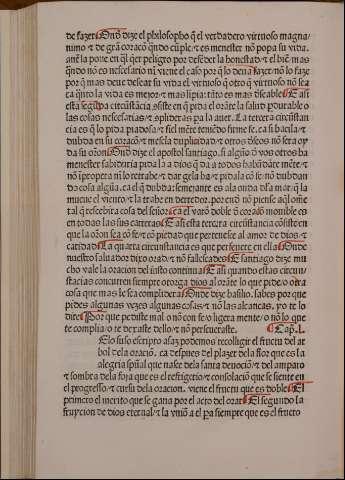 de fazer. Onð dize el philosopho q̃ el verdadero virtuoso magna-
nimo ⁊ de grã coraçõ qñdo cũple ⁊ es menester nõ popa su vida.
ante la pone en ql̃ q̃er peligro por defeder la honestad ⁊ el biẽ. mas
qñdo nõ es necessario nĩ viene el caso por q̃ lo deua fazer nõ lo faze
por q̃ mas deue desear su vida el virtuoso q̃ otro q̃ virtuoso nõ sea
ca q̃nto la vida es mejor ⁊ mas lĩpia: tãto es mas deseable. E assi
esta segũda circũstãcia ɔsiste en q̃ pida el orãte la salud pdurable o
las cosas necessarias ⁊ aplideras pa la auer. La tercera circũstan-
cia es q̃ lo pida piadosa ⁊ fiel mẽte teniẽdo firme fe. ca si bacila ⁊
dubda en su coraçõ ⁊ mescla duplicidad ⁊ otros dioses nõ sera oy-
da su oõn. Onð dize el apostol santiago. si algũo d̃ vos otros ha
menester sabiduria pidala a dios q̃ da a todos habũdãte mẽte ⁊
nõ ĩpropera nĩ lo retrahe ⁊ dar gela ha ⁊ pidala cõ fe. nõ dubdan-
do cosa algũa. ca el q̃ dubda: semejante es ala onda dla mar q̃ la
mueue el viento ⁊ la trahe en derredor. por enð nõ piense aql̃ ome
tal q̃ rescebira cosa del señor. ca el varõ doble d̃ coraçõ mouible es
en todas las sus carreras. E assi esta tercera circũstãcia ɔsiste en
que la oõn sea cõ fe ⁊ cõ piedad que pertenesce al amor de dios ⁊
caridad. La quarta circunstancia es que perseuere en ella. Onde
nuestro saluador dixo orad ⁊ nõ fallescades. E santiago dize mu-
cho vale la oracion del justo continua. E assi quando estas circun-
stancias concurren siempre otorga dios al orãte lo que pide o otra
cosa que mas le sea complidera. Onde dize basilio. sabes por que
pides algunas vezes algunas cosas ⁊ nõ las alcanças. yo te lo
dire. Por que pediste mal o nõ con fe o ligera mente o nõ lo que
te complia o te dexaste dello ⁊ nõ perseueraste. Cap. l.
Elo suso escripto assaz podemos recolligir el fructo del ar
bol dela oraciõ. ca despues del plazer dela flor que es la
alegria spũal que nasce dela santa deuociõ ⁊ del amparo
⁊ sombra dela foja que es el refrigerio ⁊ consolaciõ que se siente en
el progresso ⁊ cursu dela oracion. viene el fructo que es doble. El
primero el merito que se gana por el acto del orar. El segundo la
fruycion de dios eternal ⁊ la vniõ a el pa siempre que es el fructo